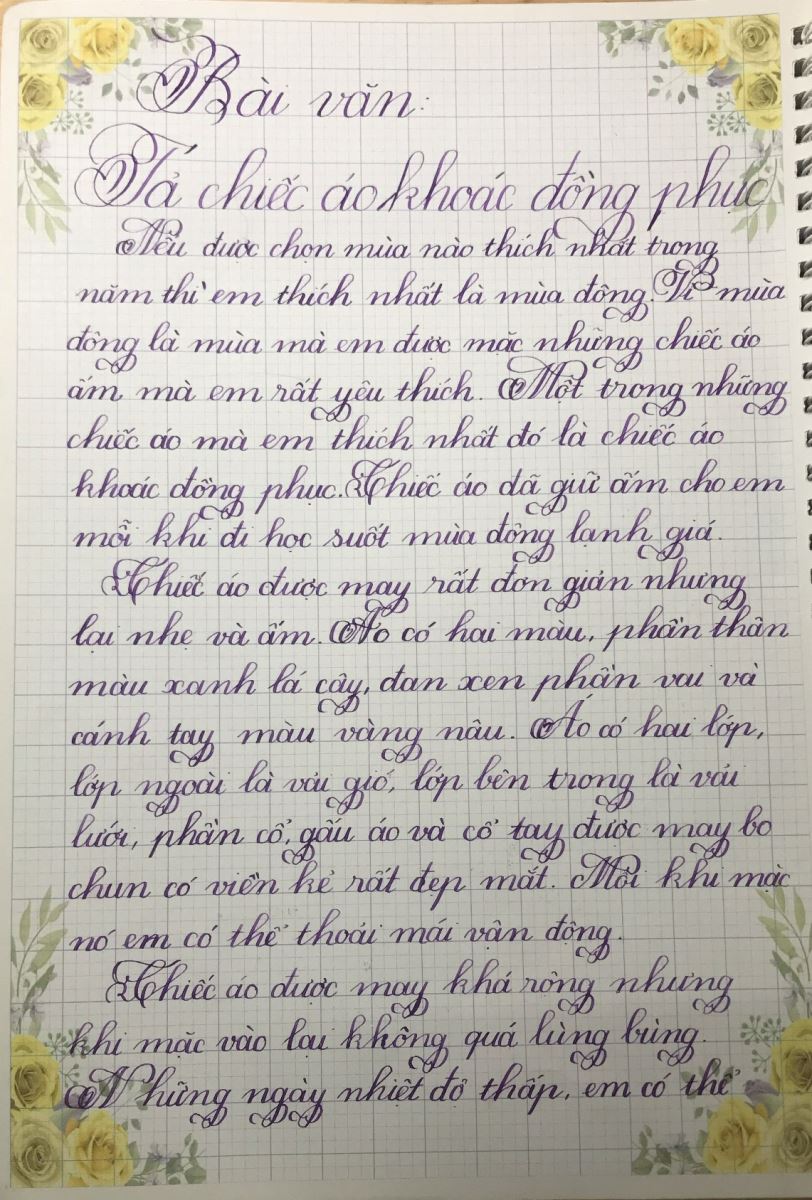 Bài văn:
Tả chiếc áo khoác đồng phục
Nếu được chọn mùa nào thích nhất trong
năm thì em thích nhất là mùa đông. Vì mùa
đông là mùa mà em được mặc những chiếc áo
ấm mà em rất yêu thích. Một trong những
chiếc áo mà em thích nhất đó là chiếc áo
khoác đồng phục. Chiếc áo đã giữ ấm cho em
mỗi khi đi học suốt mùa đông lạnh giá.
Chiếc áo được may rất đơn giản nhưng
lại nhẹ và ấm. Áo có hai màu, phần thân
màu xanh lá cây, đan xen phần vai và
cánh tay màu vàng nâu. Áo có hai lớp,
lớp ngoài là vải gió, lớp bên trong là vải
lưới, phần cổ, gấu áo và cổ tay được may bo
chun có viền kẻ rất đẹp mắt. Mỗi khi mặc
nó em có thể thoải mái vận động.
Chiếc áo được may khá rộng nhưng
khi mặc vào lại không quá lùng bùng.
Những ngày nhiệt độ thấp, em có thể